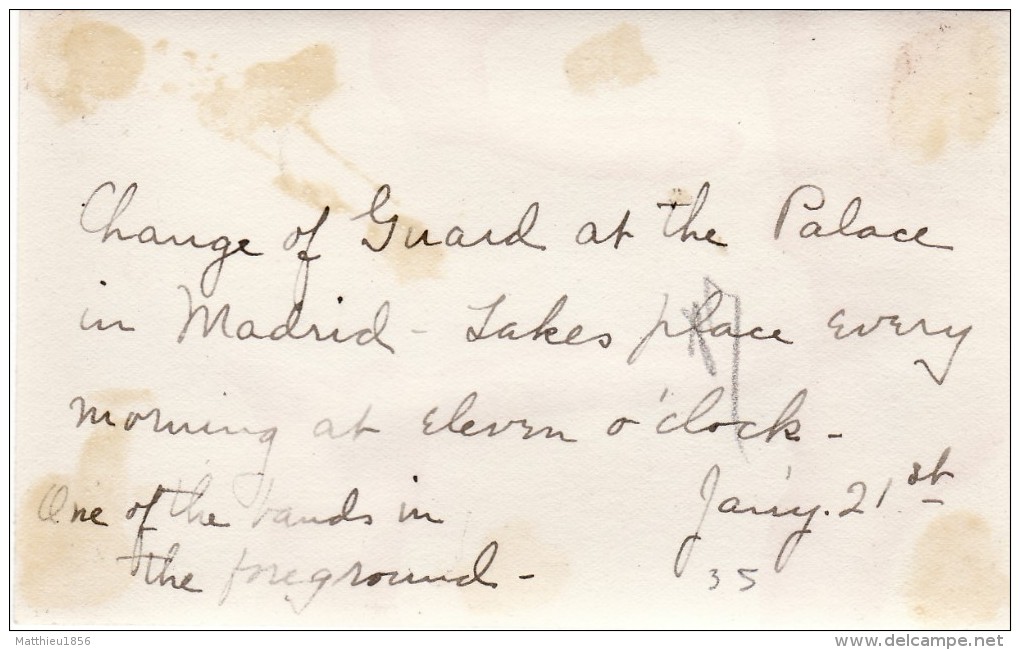 Change of Guard at the Palace
in Madrid - Takes place every
morning at eleven o'clock -
One of the bands in
the foreground -
Jan'y. 21st
35
Matthieu1856
www.delcampe.net